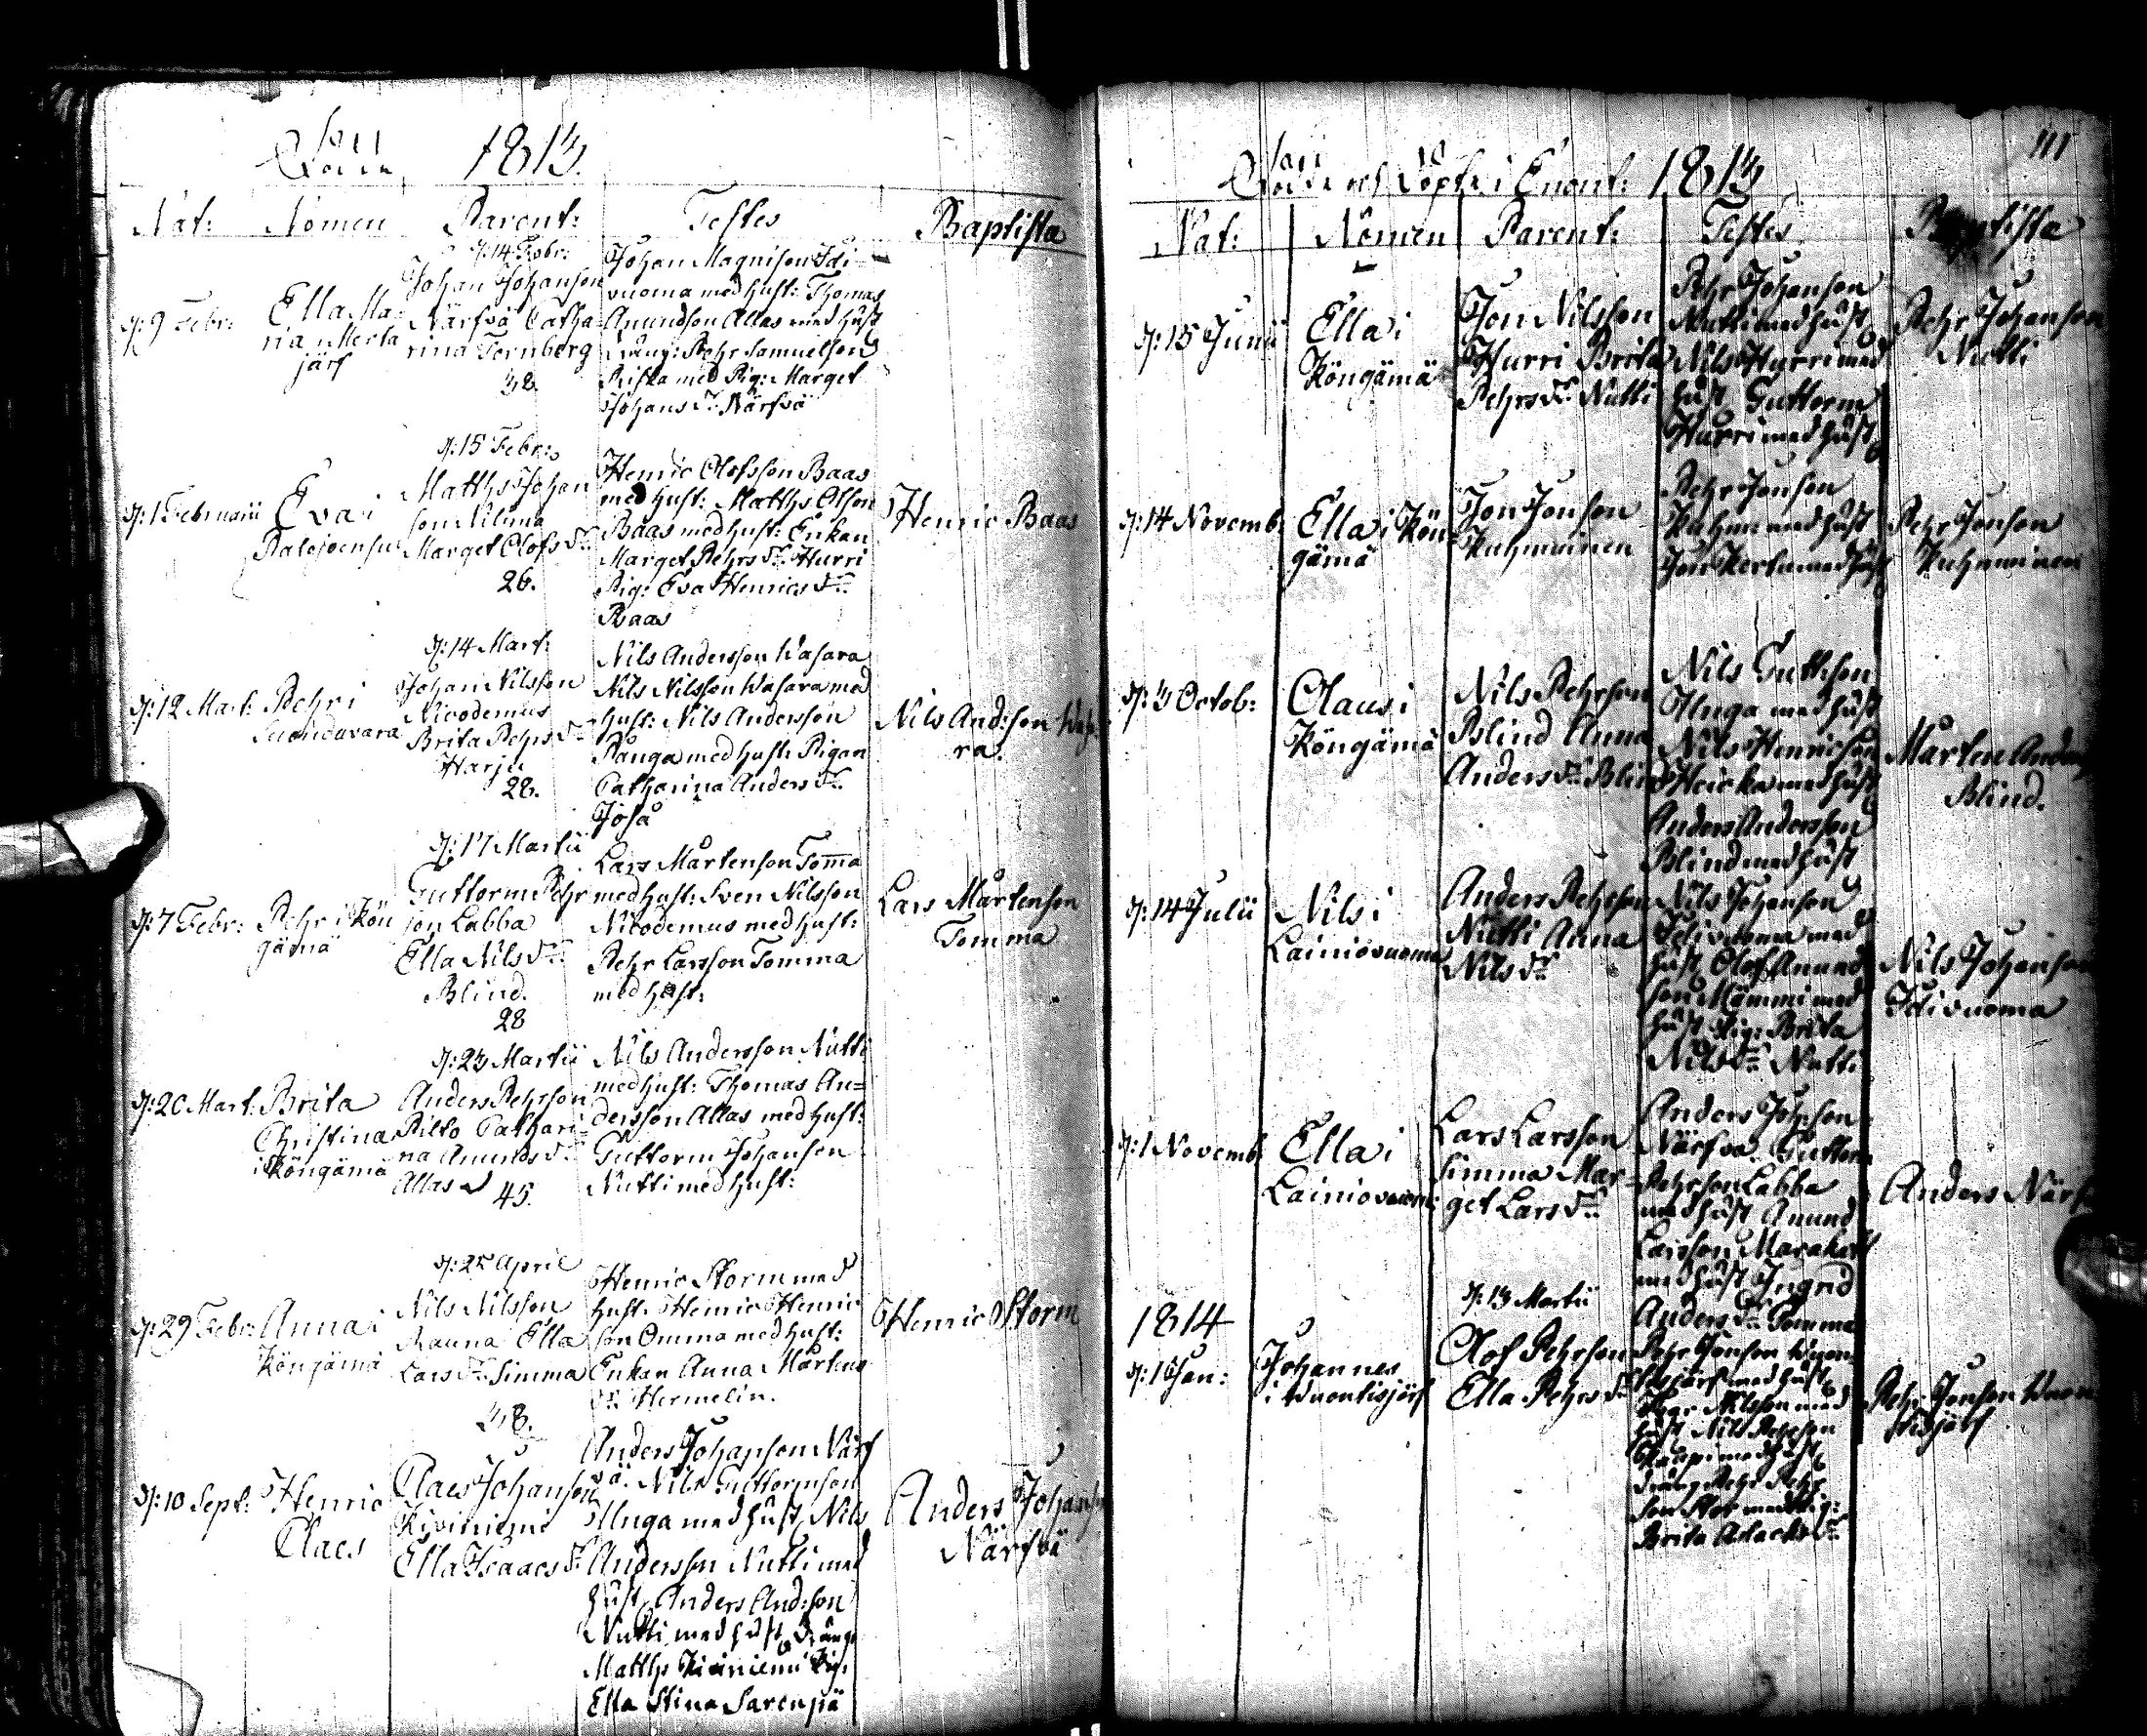 Födde 1813.
Nat: Nomen Parent: Testes Baptista
d: 9 Febr:
Ella Ma-
ria Merta
järf
d: 14 Febr:
Johan Johanson
Närfvä Catha-
rina Fernberg
38.
Johan Magnison Idi-
vuoma med hust: Thomas
Anundson Allas med hust
dräng: Pehr Samuelson
Riska med Pig: Marget
Johans dr Närfvä
d: 1 Februarii
Eva i
d: 15 Febr:
Matths Johan
son Niluna
Marget Olofs dr
26.
Henric Olofsson Baas
med hust: Matths Olson
Baas med hust: Enkan
Marget Pehrs dr Hurri
Pig: Eva Henrics dr
Baas
Henric Baas
d: 12 Mart:
Pehr i
d: 14 Mart:
Johan Nilsson
Nicodemus
Brita Pehrs dr
Harju
28.
Nils Andersson Wasara
Nils Nilsson Wasara med
hust: Nils Andersson
Panga med hust: Pigan
Catharina Anders dr
Josa
Nils And:son Wasa-
ra.
d: 7 Febr:
Pehr i Kön
gämä
d: 17 Martii
Guttorm Pehr
son Labba
Ella Nils dr
Blind.
28
Lars Mårtenson Tomma
med hust: Sven Nilsson
Nicodemus med hust:
Pehr Larsson Tomma
med hust:
Lars Mårtenson
Tomma
d: 20 Mart:
Brita
Christina
i Köngämä
d: 23 Martii
Anders Pehrson
Pilto Cathari-
na Anunds dr
Allas
45.
Nils Andersson Nutti
med hust: Thomas An=
dersson Allas med hust:
Guttorm Johanson
Nutti med hust:
d: 29 Febr:
Anna i
Köngämä
d: 25 April
Nils Nilsson
Rauna Ella
Lars dr Simma
38.
Henric Storm med
hust: Henric Henric
son Omma med hust:
Enkan Anna Mårtens
dr Hermelin.
Henric Storm
d: 10 Sept:
Henric
Claes
Claes Johanson
Kiviniemi
Ella Isaacs dr
Anders Johanson Närf
vä. Nils Guttormson
Unga med hust Nils
Andersson Nutti med
hust Anders And:son
Nutti med hust dräng
Matths Kiviniemi Pig.
Ella Stina Sarenpä
Anders Johanson
Närfvä
111
Födde och Döpte i Enont: 1813
Nat: Nomen Parent: Testes Baptista
d: 15 Junii
Ella i
Köngämä
Jon Nilsson
Hurri Brita
Pehrs dr Nutti
Pehr Johanson
Nutti med hust
Nils Hurri med
hust Guttorm
Hurri med hust
Pehr Johanson
Nutti
d: 14 Novemb:
Ella i Kön-
gämä
Jon Jonson
Kuhmuinen
Pehr Jonson
Kuhm: med hust
Jon Kertu med hust
Pehr Jonson
Kuhmuinen
d: 3 Octob:
Olaus i
Köngämä
Nils Pehrson
Blind Anna
Anders dr Blind
Nils Gutt:son
Unga med hust
Nils Henricson
Heicka med hust
Anders Andersson
Blind med hust
Mårten Anders
Blind.
d: 14 Julii
Nils i
Lainiovuoma
Anders Pehrson
Nutti Anna
Nils dr
Nils Johanson
Idivuoma med
hust Olof Anund
son Mämmi med
hust Pig: Brita
Nils dr Nutti
Nils Johanson
Idivuoma
d: 1 Novemb:
Ella i
Lainiovuom:
Lars Larsson
Simma Mar-
get Lars dr
Anders Joh:son
Närfva. Guttorm
Pehrson Labba
med hust Anund
Larsson Marakatt
med hust Ingrid
Anders dr Tomma
Anders Närf
1814
d: 16 Jan:
Johannes
i Wuontisjärf
d: 13 Martii
Olof Pehrson
Ella Pehrs dr
Pehr Jonson Wuon-
tisjärf med hust
Nilsson med
hust Nils Pehrson
med hust
dräng Pehr Pehr
son Stor med Pig:
Brita Adachs dr
Pehr Jonson Wuon
tisjärf